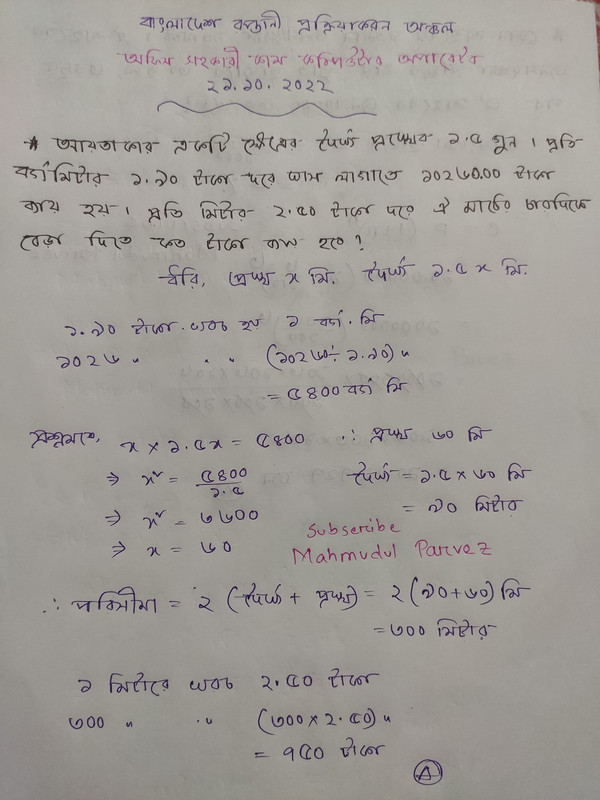 বাংলাদেশ রপ্তানী প্রক্রিয়াকরন অঞ্চল
অফিস সহকারী কাম কম্পিউটার অপারেটর
২১.১০.২০২২
* আয়তাকার একটি ক্ষেত্রের দৈর্ঘ্য প্রস্থের ১.৫ গুন। প্রতি
বর্গমিটার ১.৯০ টাকা দরে ঘাস লাগাতে ১০২৬০.০০ টাকা
ব্যয় হয়। প্রতি মিটার ২.৫০ টাকা দরে ঐ মাঠের চারদিকে
বেড়া দিতে কত টাকা ব্যয় হবে?
ধরি, প্রস্থ x মি. দৈর্ঘ্য ১.৫ x মি.
১.৯০ টাকা খরচ হয় ১ বর্গ. মি
১০২৬ " " " (১০২৬০÷১.৯০) "
= ৫৪০০ বর্গ মি
প্রশ্নমতে, x × ১.৫x = ৫৪০০ ∴ প্রস্থ ৬০ মি
⇒ x² = ৫৪০০/১.৫ দৈর্ঘ্য = ১.৫ × ৬০ মি
⇒ x² = ৩৬০০ = ৯০ মিটার
⇒ x = ৬০ Subscribe
Mahmudul Parvez
∴ পরিসীমা = ২ (দৈর্ঘ্য + প্রস্থ) = ২ (৯০+৬০) মি
= ৩০০ মিটার
১ মিটারে খরচ ২.৫০ টাকা
৩০০ " " (৩০০ × ২.৫০) "
= ৭৫০ টাকা
A